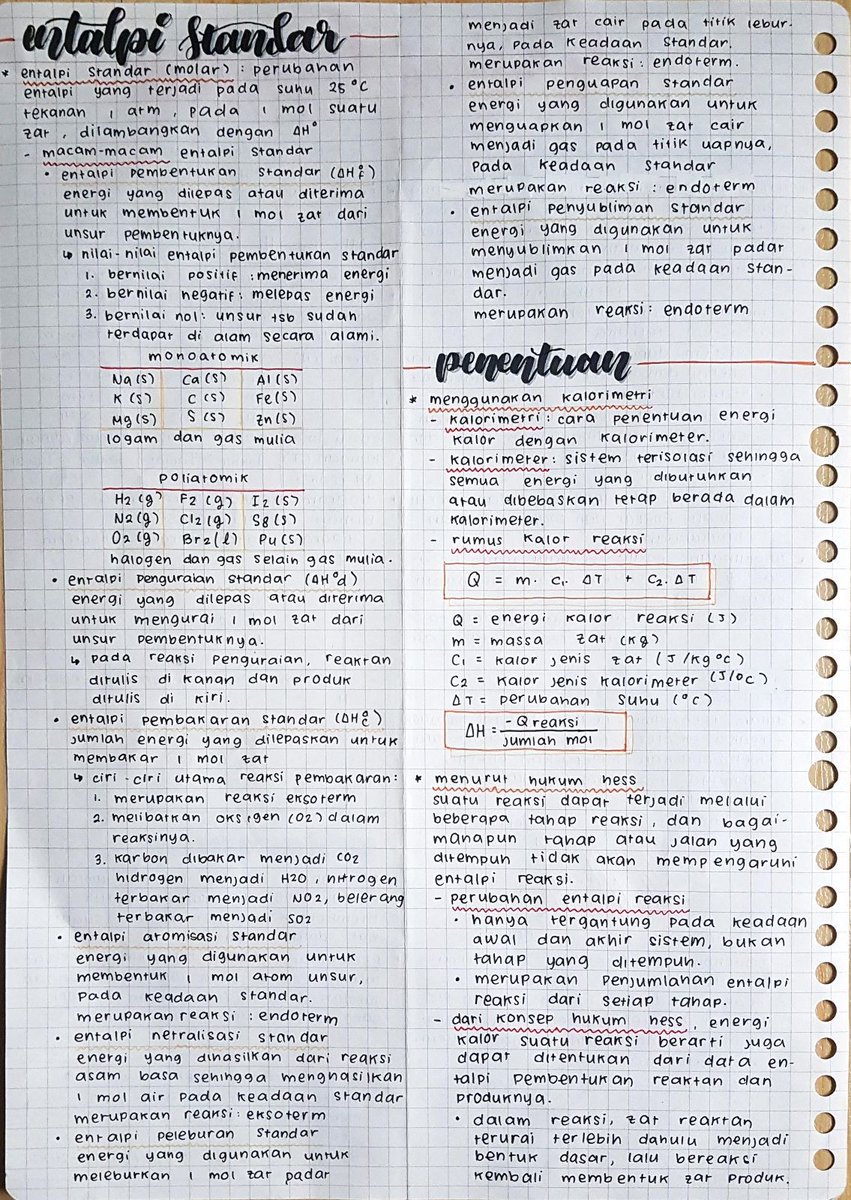 entalpi standar
* entalpi standar (molar) : perubahan
entalpi yang terjadi pada suhu 25°C
tekanan 1 atm, pada 1 mol suatu
zat, dilambangkan dengan ΔH°
- macam-macam entalpi standar
• entalpi pembentukan standar (ΔH°f)
energi yang dilepas atau diterima
untuk membentuk 1 mol zat dari
unsur pembentuknya.
↳ nilai-nilai entalpi pembentukan standar
1. bernilai positif : menerima energi
2. bernilai negatif : melepas energi
3. bernilai nol : unsur tsb sudah
terdapat di alam secara alami.
monoatomik
Na(s) Ca(s) Al(s)
K(s) C(s) Fe(s)
Mg(s) S(s) Zn(s)
logam dan gas mulia
poliatomik
H2(g) F2(g) I2(s)
N2(g) Cl2(g) S8(s)
O2(g) Br2(l) Pu(s)
halogen dan gas selain gas mulia.
• entalpi penguraian standar (ΔH°d)
energi yang dilepas atau diterima
untuk mengurai 1 mol zat dari
unsur pembentuknya.
↳ pada reaksi penguraian, reaktan
ditulis di kanan dan produk
ditulis di kiri.
• entalpi pembakaran standar (ΔH°c)
jumlah energi yang dilepaskan untuk
membakar 1 mol zat
↳ ciri-ciri utama reaksi pembakaran :
1. merupakan reaksi eksoterm
2. melibatkan oksigen (O2) dalam
reaksinya.
3. karbon dibakar menjadi CO2
hidrogen menjadi H2O, nitrogen
terbakar menjadi NO2, belerang
terbakar menjadi SO2
• entalpi atomisasi standar
energi yang digunakan untuk
membentuk 1 mol atom unsur,
pada keadaan standar.
merupakan reaksi : endoterm
• entalpi netralisasi standar
energi yang dihasilkan dari reaksi
asam basa sehingga menghasilkan
1 mol air pada keadaan standar
merupakan reaksi : eksoterm
• entalpi peleburan standar
energi yang digunakan untuk
meleburkan 1 mol zat padat
menjadi zat cair pada titik lebur-
nya, pada keadaan standar.
merupakan reaksi : endoterm.
• entalpi penguapan standar
energi yang digunakan untuk
menguapkan 1 mol zat cair
menjadi gas pada titik uapnya,
pada keadaan standar
merupakan reaksi : endoterm
• entalpi penyubliman standar
energi yang digunakan untuk
menyublimkan 1 mol zat padat
menjadi gas pada keadaan stan-
dar.
merupakan reaksi : endoterm
penentuan
* menggunakan kalorimetri
- kalorimetri : cara penentuan energi
kalor dengan kalorimeter.
- kalorimeter : sistem terisolasi sehingga
semua energi yang dibutuhkan
atau dibebaskan tetap berada dalam
kalorimeter.
- rumus kalor reaksi
Q = m. c1. ΔT + C2. ΔT
Q = energi kalor reaksi (J)
m = massa zat (kg)
C1 = kalor jenis zat (J/kg°C)
C2 = kalor jenis kalorimeter (J/°C)
ΔT = perubahan suhu (°C)
ΔH = -Q reaksi / jumlah mol
* menurut hukum hess
suatu reaksi dapat terjadi melalui
beberapa tahap reaksi, dan bagai-
manapun tahap atau jalan yang
ditempuh tidak akan mempengaruhi
entalpi reaksi.
- perubahan entalpi reaksi
• hanya tergantung pada keadaan
awal dan akhir sistem, bukan
tahap yang ditempuh.
• merupakan penjumlahan entalpi
reaksi dari setiap tahap.
- dari konsep hukum hess, energi
kalor suatu reaksi berarti juga
dapat ditentukan dari data en-
talpi pembentukan reaktan dan
produknya.
• dalam reaksi, zat reaktan
terurai terlebih dahulu menjadi
bentuk dasar, lalu bereaksi
kembali membentuk zat produk.